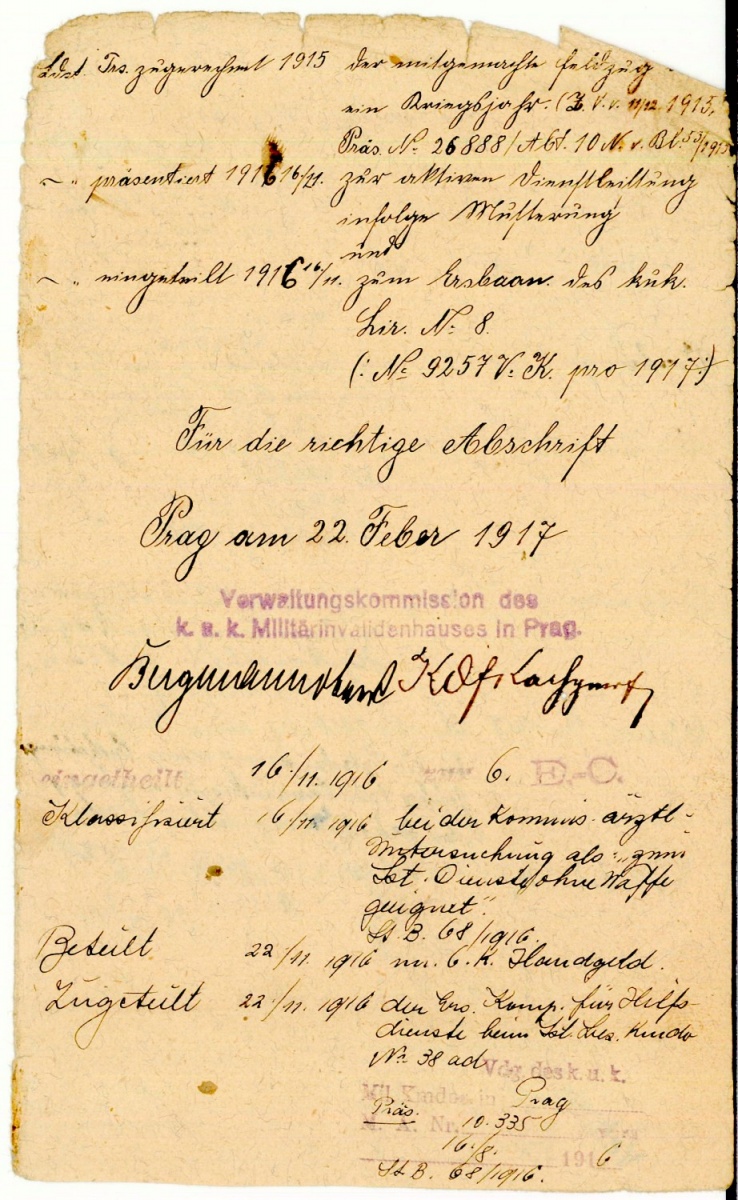 Ldst. Trs. zugerechnet 1915 der mitgemachte Feldzug -
ein Kriegsjahr. (Z. V. v. 11/12 1915,
Präs. No 26888/Abt. 10 N. v. Bl. 53/1915
~ " präsentiert 1916 16/11. zur aktiven Dienstleistung
infolge Musterung
und
~ " eingeteilt 1916 16/11. zum Ersbaon. des kuk.
No 8.
(: No 9257 V. K. pro 1917:)
Für die richtige Abschrift
Prag am 22. Feber 1917
Verwaltungskommission des
k. u. k. Militärinvalidenhauses in Prag.
Bergmann
eingetheilt 16./11. 1916 zur 6. E.-C.
Klassifisiert 16/11. 1916 bei der Kommis. ärztl-
Untersuchung als "zum
Lst. Dienste ohne Waffe
geeignet".
St. B. 68/1916.
Beteilt 22/11. 1916 m. 6. K. Handgeld.
Zugeteilt 22./11. 1916 der Ers. Komp. für Hilfs-
dienste beim Lst. Bez. Kmdo
No 38 ad
Vdg. des k. u. k.
Mil. Kmdos. in Prag
Präs.
M. A. Nr. 10.335
16/8. 1916
St. B. 68/1916.